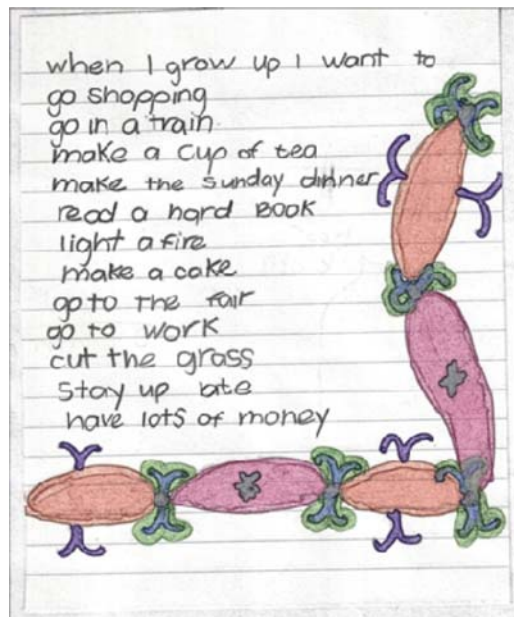 when I grow up I want to
go shopping
go in a train
make a cup of tea
make the sunday dinner
read a hard BOOK
light a fire
make a cake
go to the fair
go to work
cut the grass
Stay up late
have lots of money